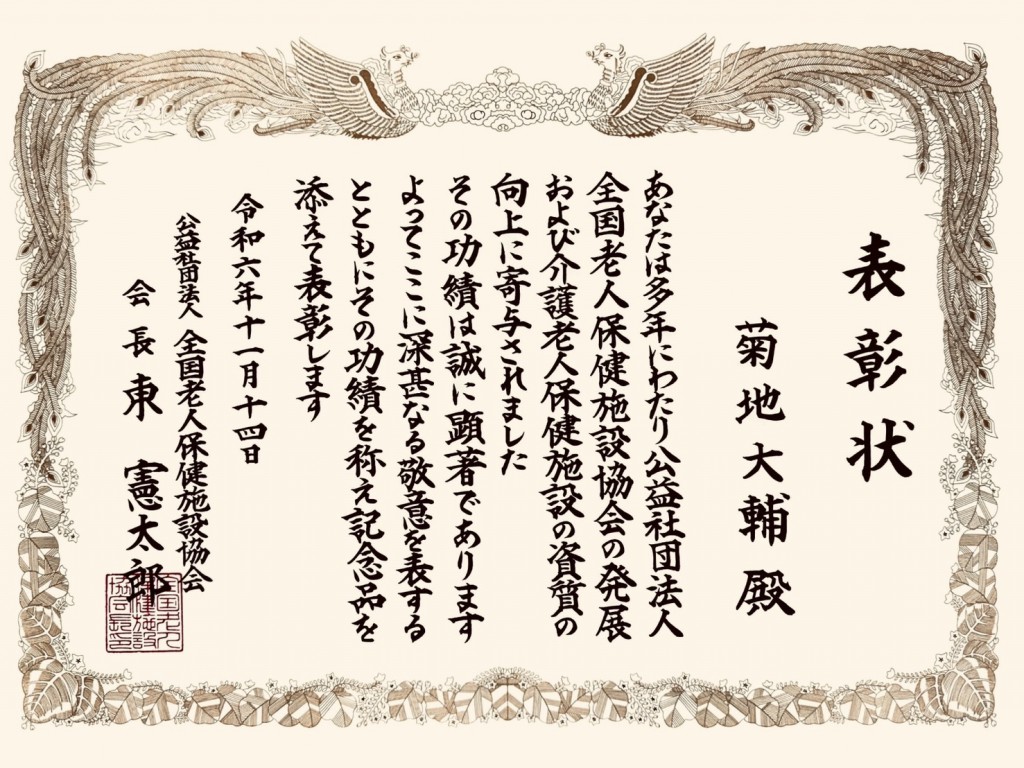 表彰状
菊地大輔 殿
あなたは多年にわたり公益社団法人
全国老人保健施設協会の発展
および介護老人保健施設の資質の
向上に寄与されました
その功績は誠に顕著であります
よってここに深甚なる敬意を表する
とともにその功績を称え記念品を
添えて表彰します
令和六年十一月十四日
公益社団法人 全国老人保健施設協会
会長 東 憲太郎
全国老人
保健施設
協会長印